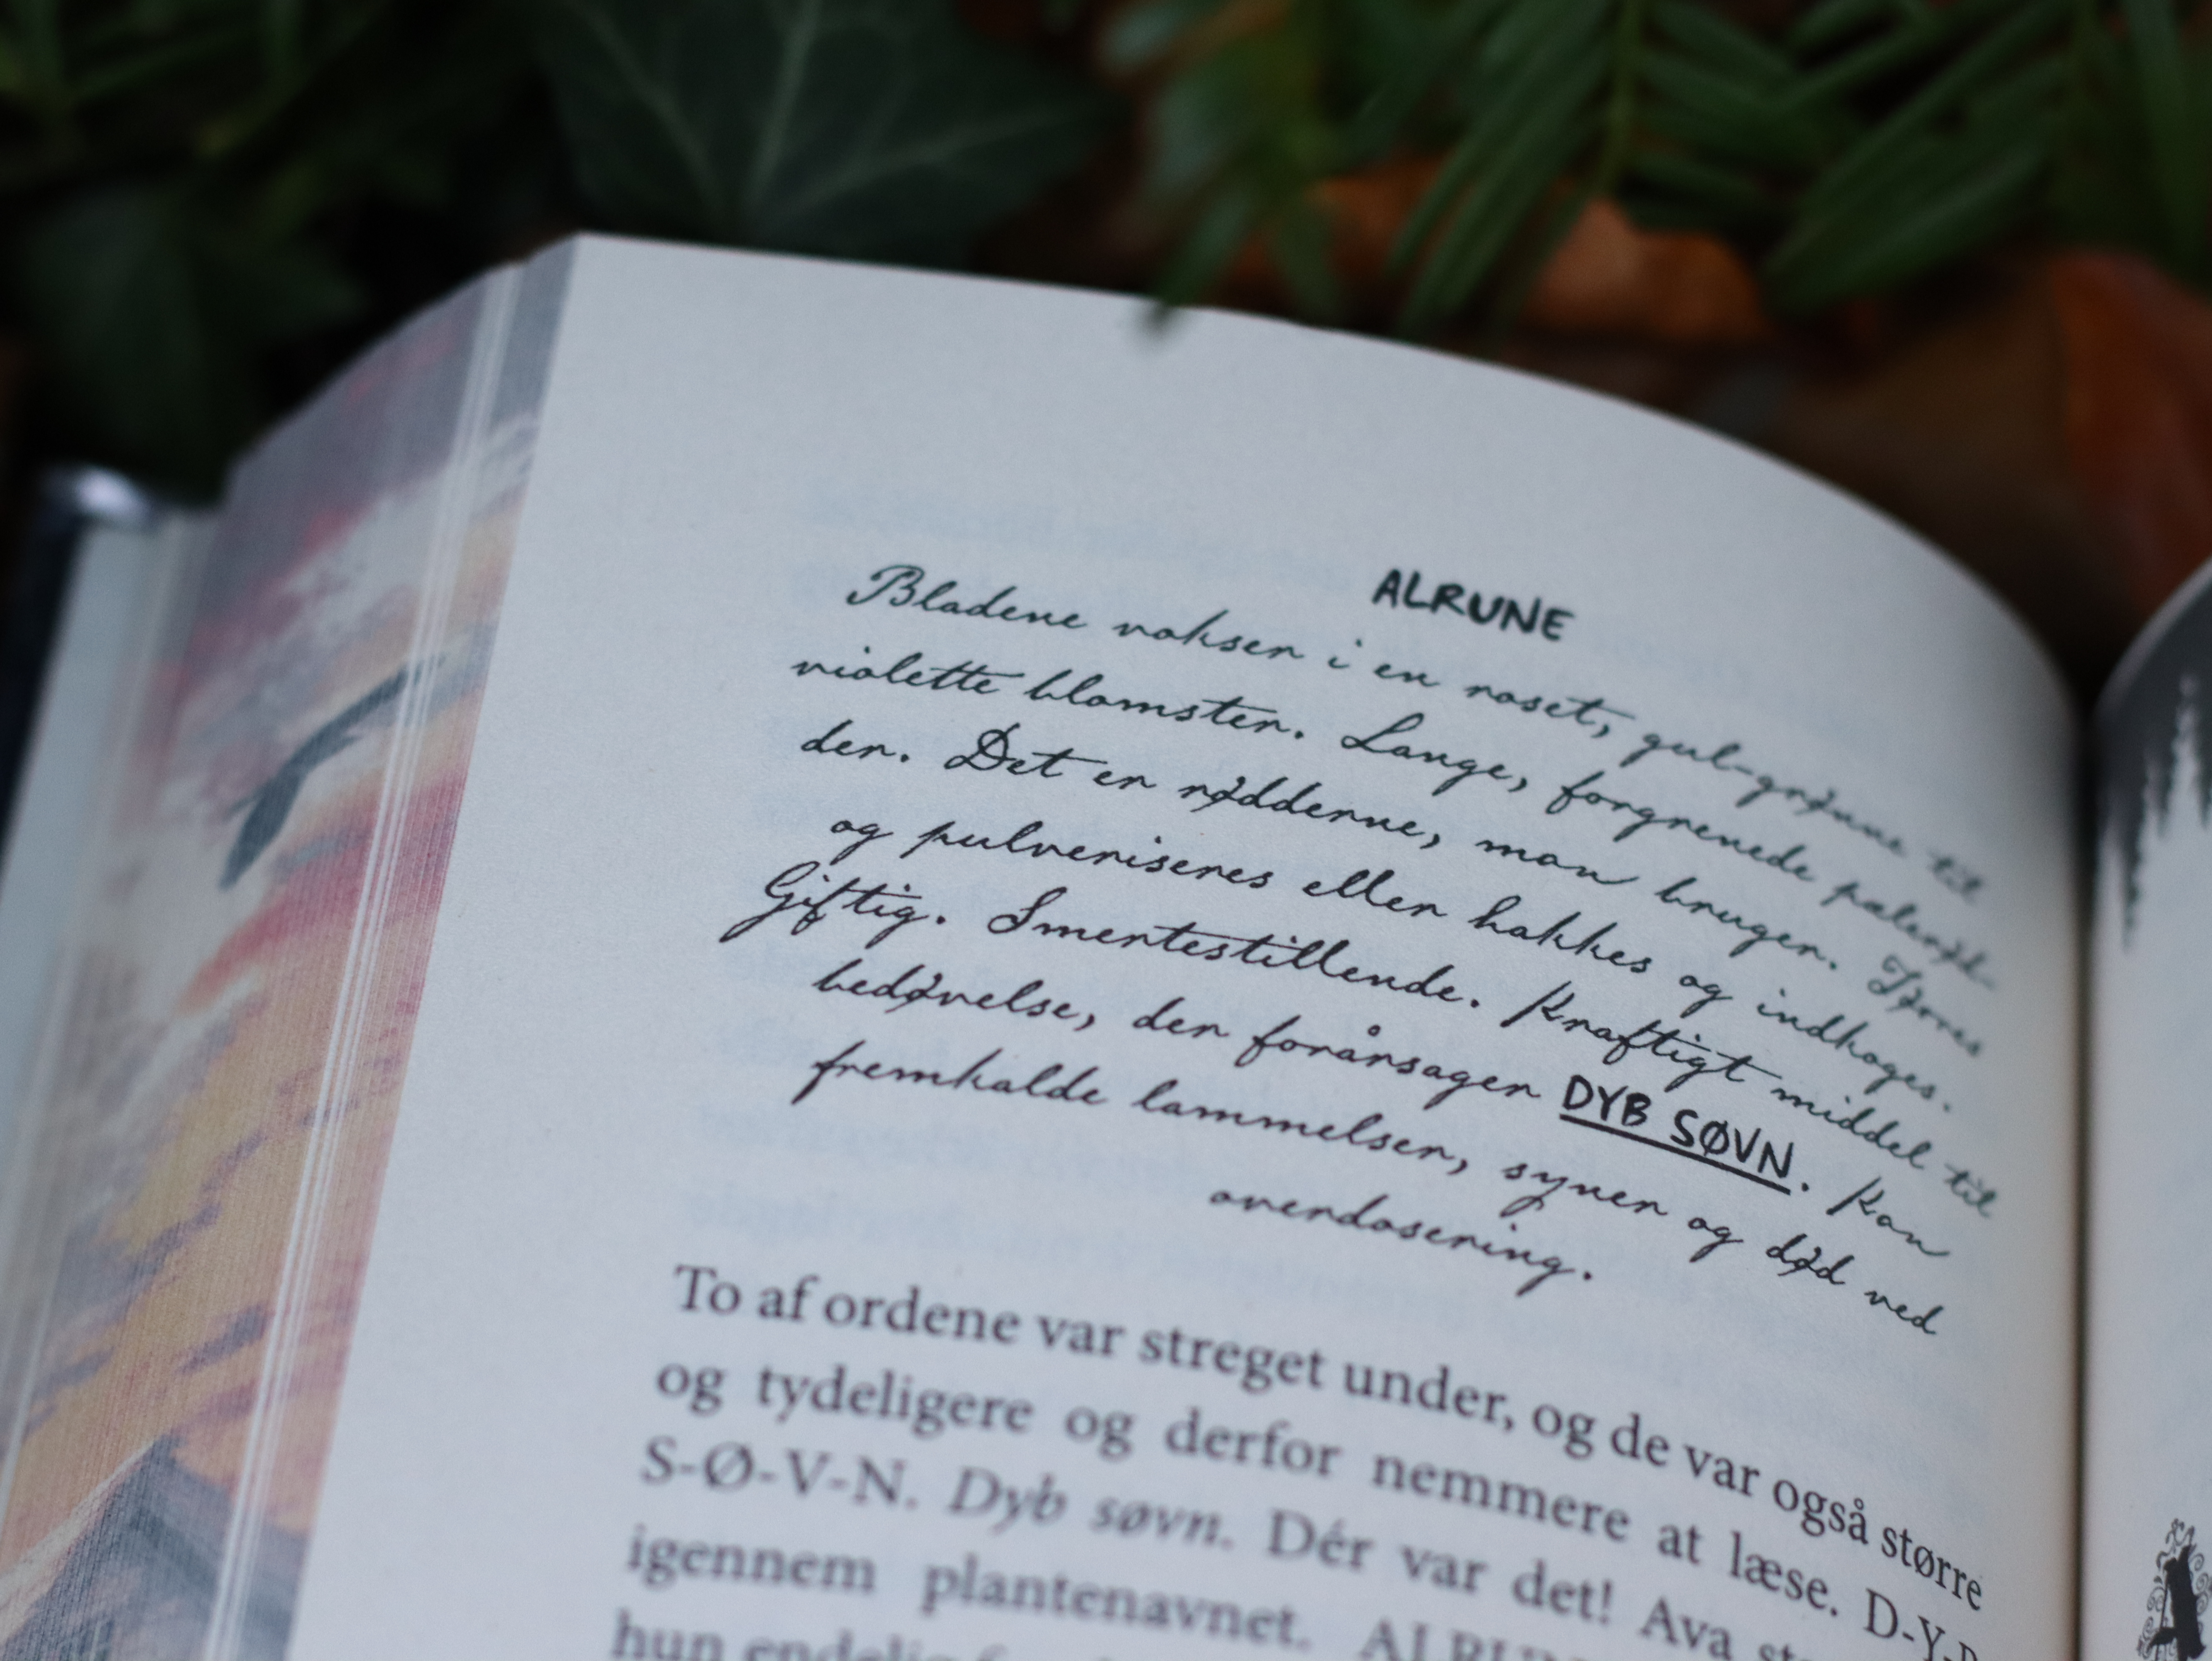 ALRUNE
Bladene vokser i en roset, gul-grønne til
violette blomster. Lange, forgrenede pælerød-
der. Det er rødderne, man bruger. Tørres
og pulveriseres eller hakkes og indkoges.
Giftig. Smertestillende. Kraftigt middel til
bedøvelse, der forårsager DYB SØVN. Kan
fremkalde lammelser, syner og død ved
overdosering.
To af ordene var streget under, og de var også større
og tydeligere og derfor nemmere at læse. D-Y-B
S-Ø-V-N. Dyb søvn. Dér var det! Ava
igennem plantenavnet.
hun